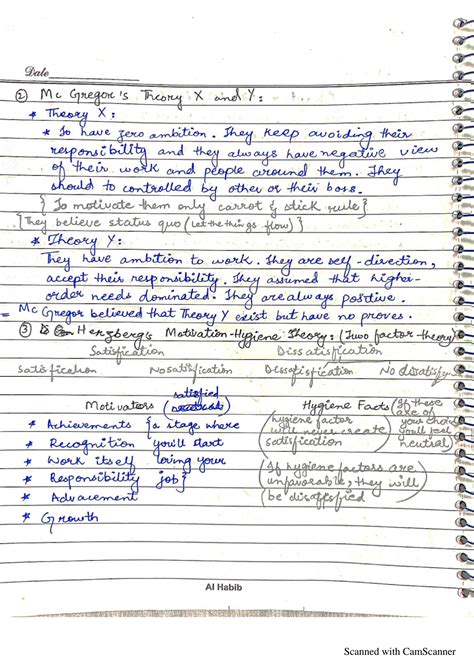 Date
② Mc Gregor's Theory X and Y:
* Theory X:
* To have zero ambition. They keep avoiding their
responsibility and they always have negative view
of their work and people around them. They
should to controlled by other or their boss.
{ To motivate them only carrot & stick rule}
{They believe status quo (Let the things flow)}
* Theory Y:
They have ambition to work. They are self-direction,
accept their responsibility. They assumed that higher-
order needs dominated. They are always positive.
= Mc Gregor believed that Theory Y exist but have no proves.
③ Herzberg's Motivation-Hygiene Theory: (Two factor theory)
Satisfication Dissatisfication
Satisfication No satisfication Dissatisfication No dissatisfy
satisfied
Motivators (neutrals) Hygiene Facts (If these
* Achievements {a stage where (hygiene factor are of your choice
* Recognition you'll start will never create you'll feel
* Work itself loving your satisfication) neutral)
* Responsibility job} (If hygiene factors are
* Advacement unfavorable, they will
* Growth (be dissatisfied
Al Habib
Scanned with CamScanner